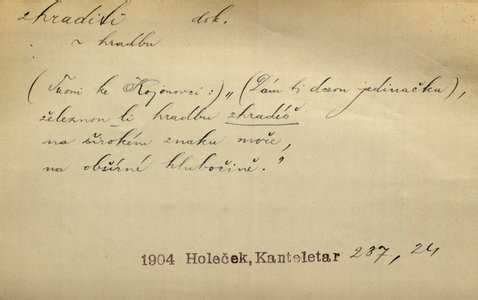 zhraditi dok.
~ hradbu
(Tuoni ke Kojonovci:) „(Dám ti dceru jedinačku),
železnou-li hradbu zhradíš
na širokém znaku moře,
na obšírné hlubočině."
1904 Holeček, Kanteletar 237, 24